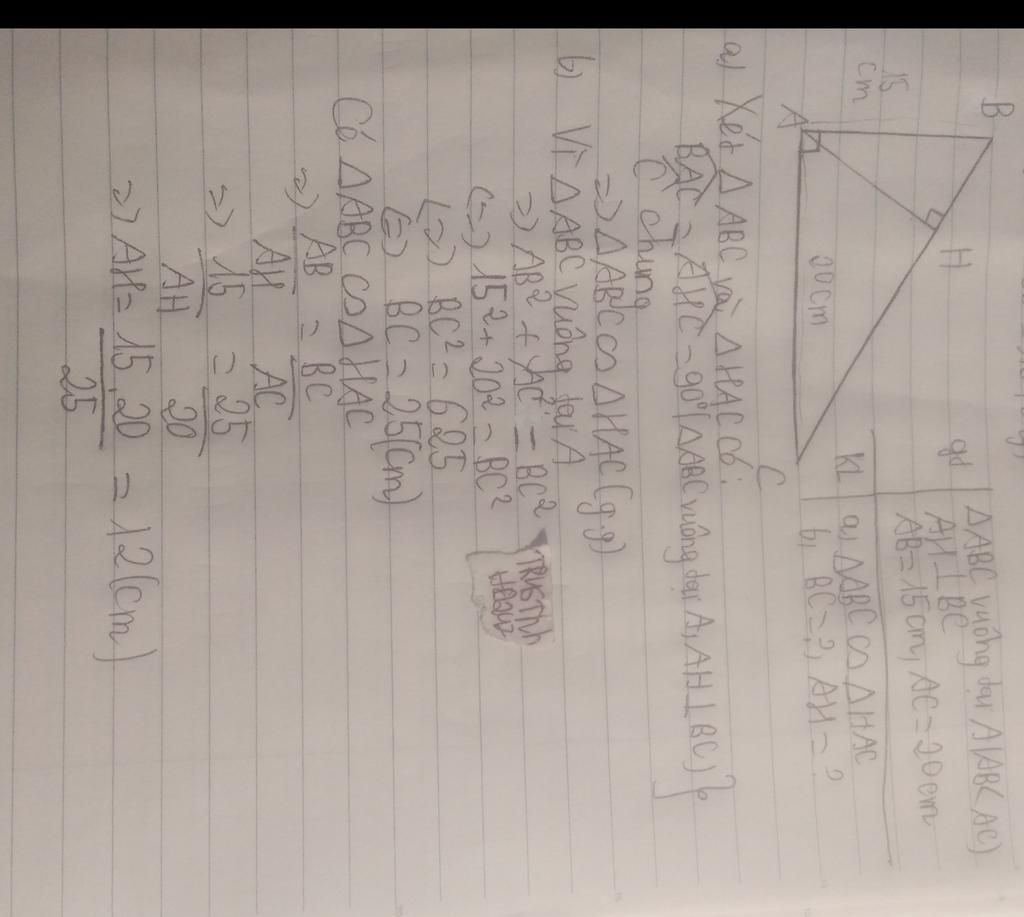 B
A
H
C
15
cm
20cm
gt
ΔABC vuông tại A (AB < AC)
AH ⊥ BC
AB = 15cm, AC = 20cm
kl
a, ΔABC ∽ ΔHAC
b, BC = ?, AH = ?
a) Xét ΔABC và ΔHAC có:
BAC = AHC = 90° (ΔABC vuông tại A, AH ⊥ BC)
C chung
=> ΔABC ∽ ΔHAC (g.g)
b) Vì ΔABC vuông tại A
=> AB² + AC² = BC²
(=) 15² + 20² = BC²
(=) BC² = 625
(=) BC = 25(cm)
Có ΔABC ∽ ΔHAC
=> AB/AH = BC/AC
=> 15/AH = 25/20
=> AH = 15.20/25 = 12(cm)